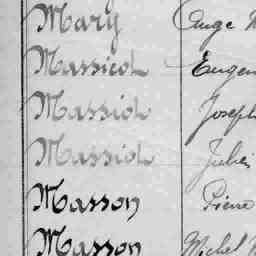 Mary Ange
Massicot Eugen
Massiot Joseph
Massiot Jules
Masson Pierre
Masson Michel